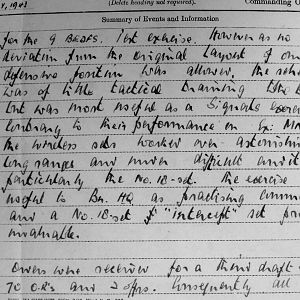 Y, 1943
(Delete heading not required).
Commanding O
Summary of Events and Information
for the 9 BRDFS. Test exercise. However as no
deviation from the original layout of our
defensive position was allowed, the sche
was of little tactical training
but was most useful as a signals exerci
contrary to their performance on
the wireless sets worked over astonishin
long ranges and under difficult condit
particularly the No. 18-set. The exercise
useful to Bn. HQ as practising comm
and a No. 18-set "intercept" set pr
invaluable.
Orders were received for a third draft
70 O.R's and 2 offrs. Consequently all